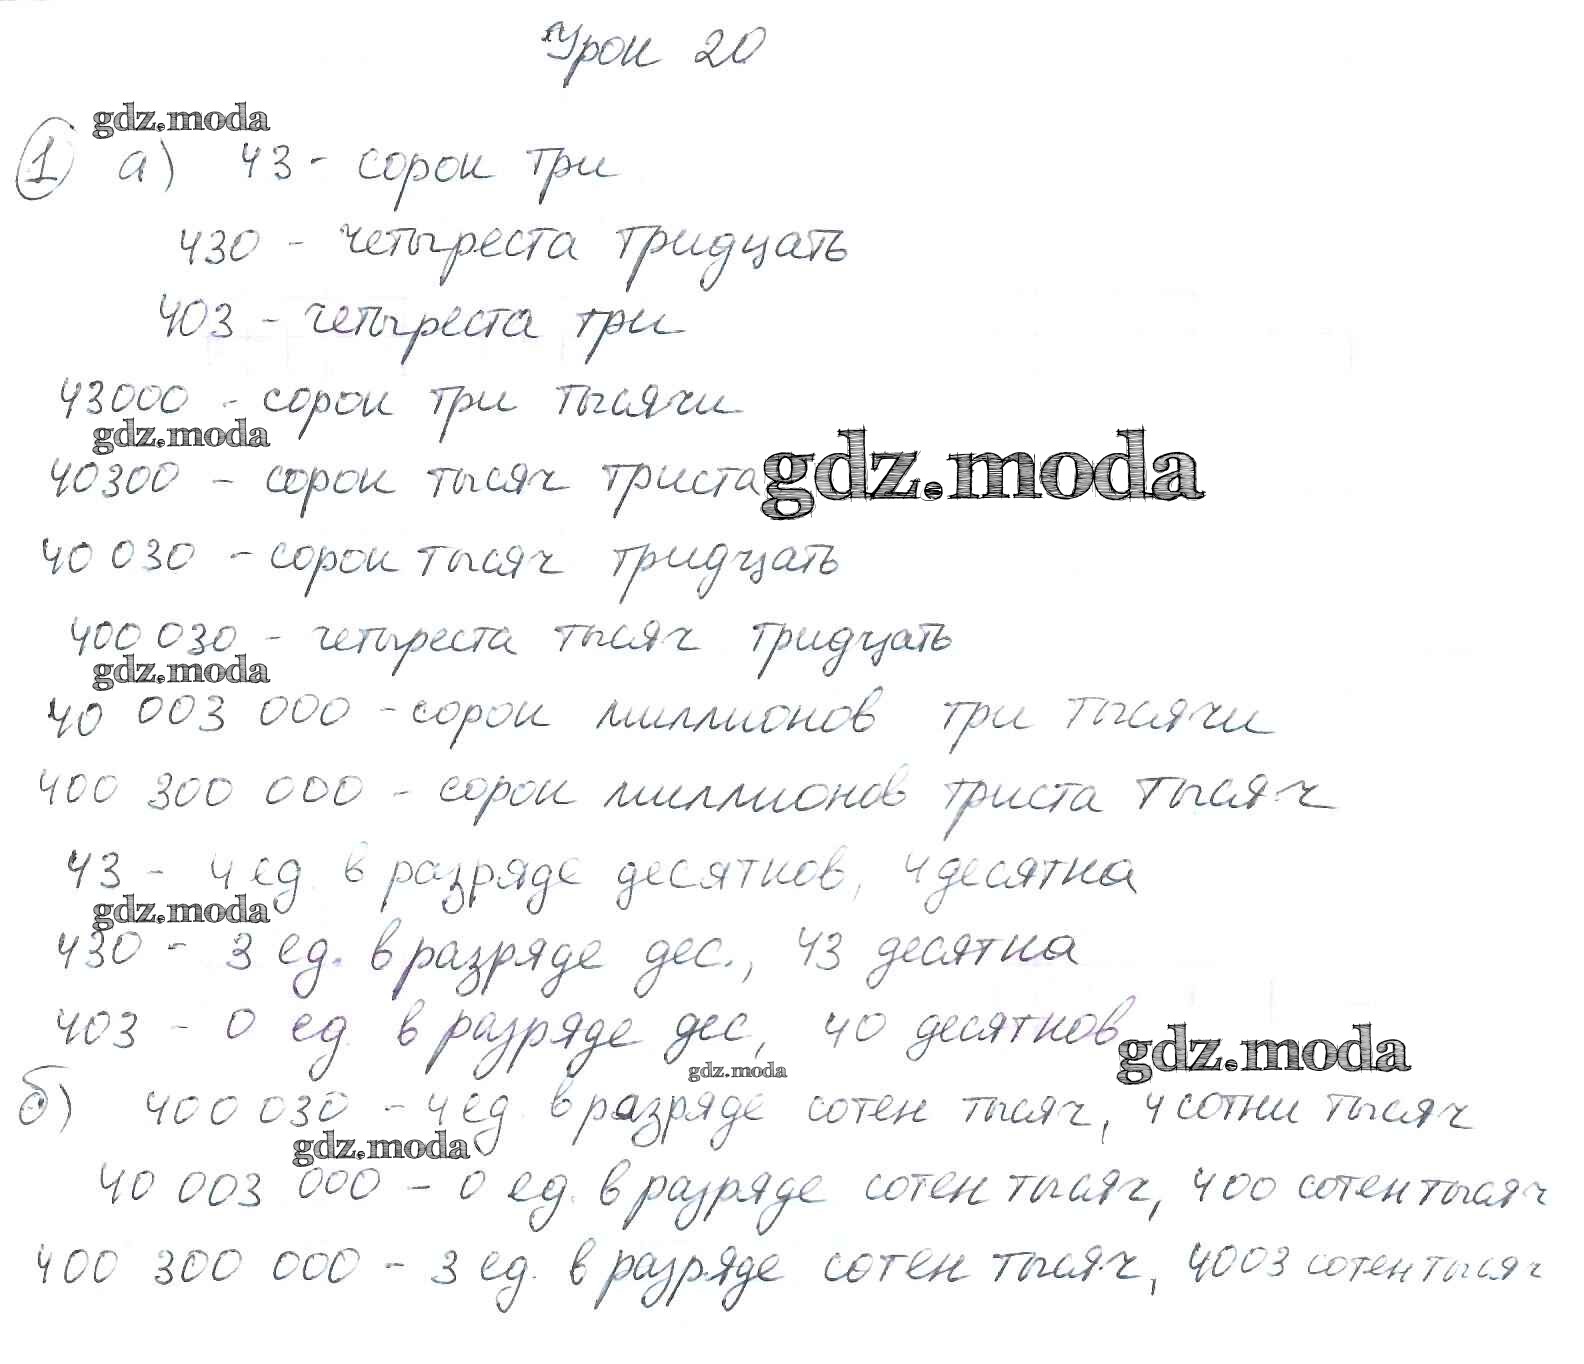 Урок 20
gdz.moda
1 а) 43 - сорок три
430 - четыреста тридцать
403 - четыреста три
43000 - сорок три тысячи
gdz.moda
40300 - сорок тысяч триста gdz.moda
40 030 - сорок тысяч тридцать
400 030 - четыреста тысяч тридцать
gdz.moda
40 003 000 - сорок миллионов три тысячи
400 300 000 - сорок миллионов триста тысяч
43 - 4 ед. в разряде десятков, 4 десятка
gdz.moda
430 - 3 ед. в разряде дес., 43 десятка
403 - 0 ед. в разряде дес, 40 десятков
gdz.moda
gdz.moda
б) 400 030 - 4 ед. в разряде сотен тысяч, 4 сотни тысяч
gdz.moda
40 003 000 - 0 ед. в разряде сотен тысяч, 400 сотен тысяч
400 300 000 - 3 ед. в разряде сотен тысяч, 4003 сотен тысяч